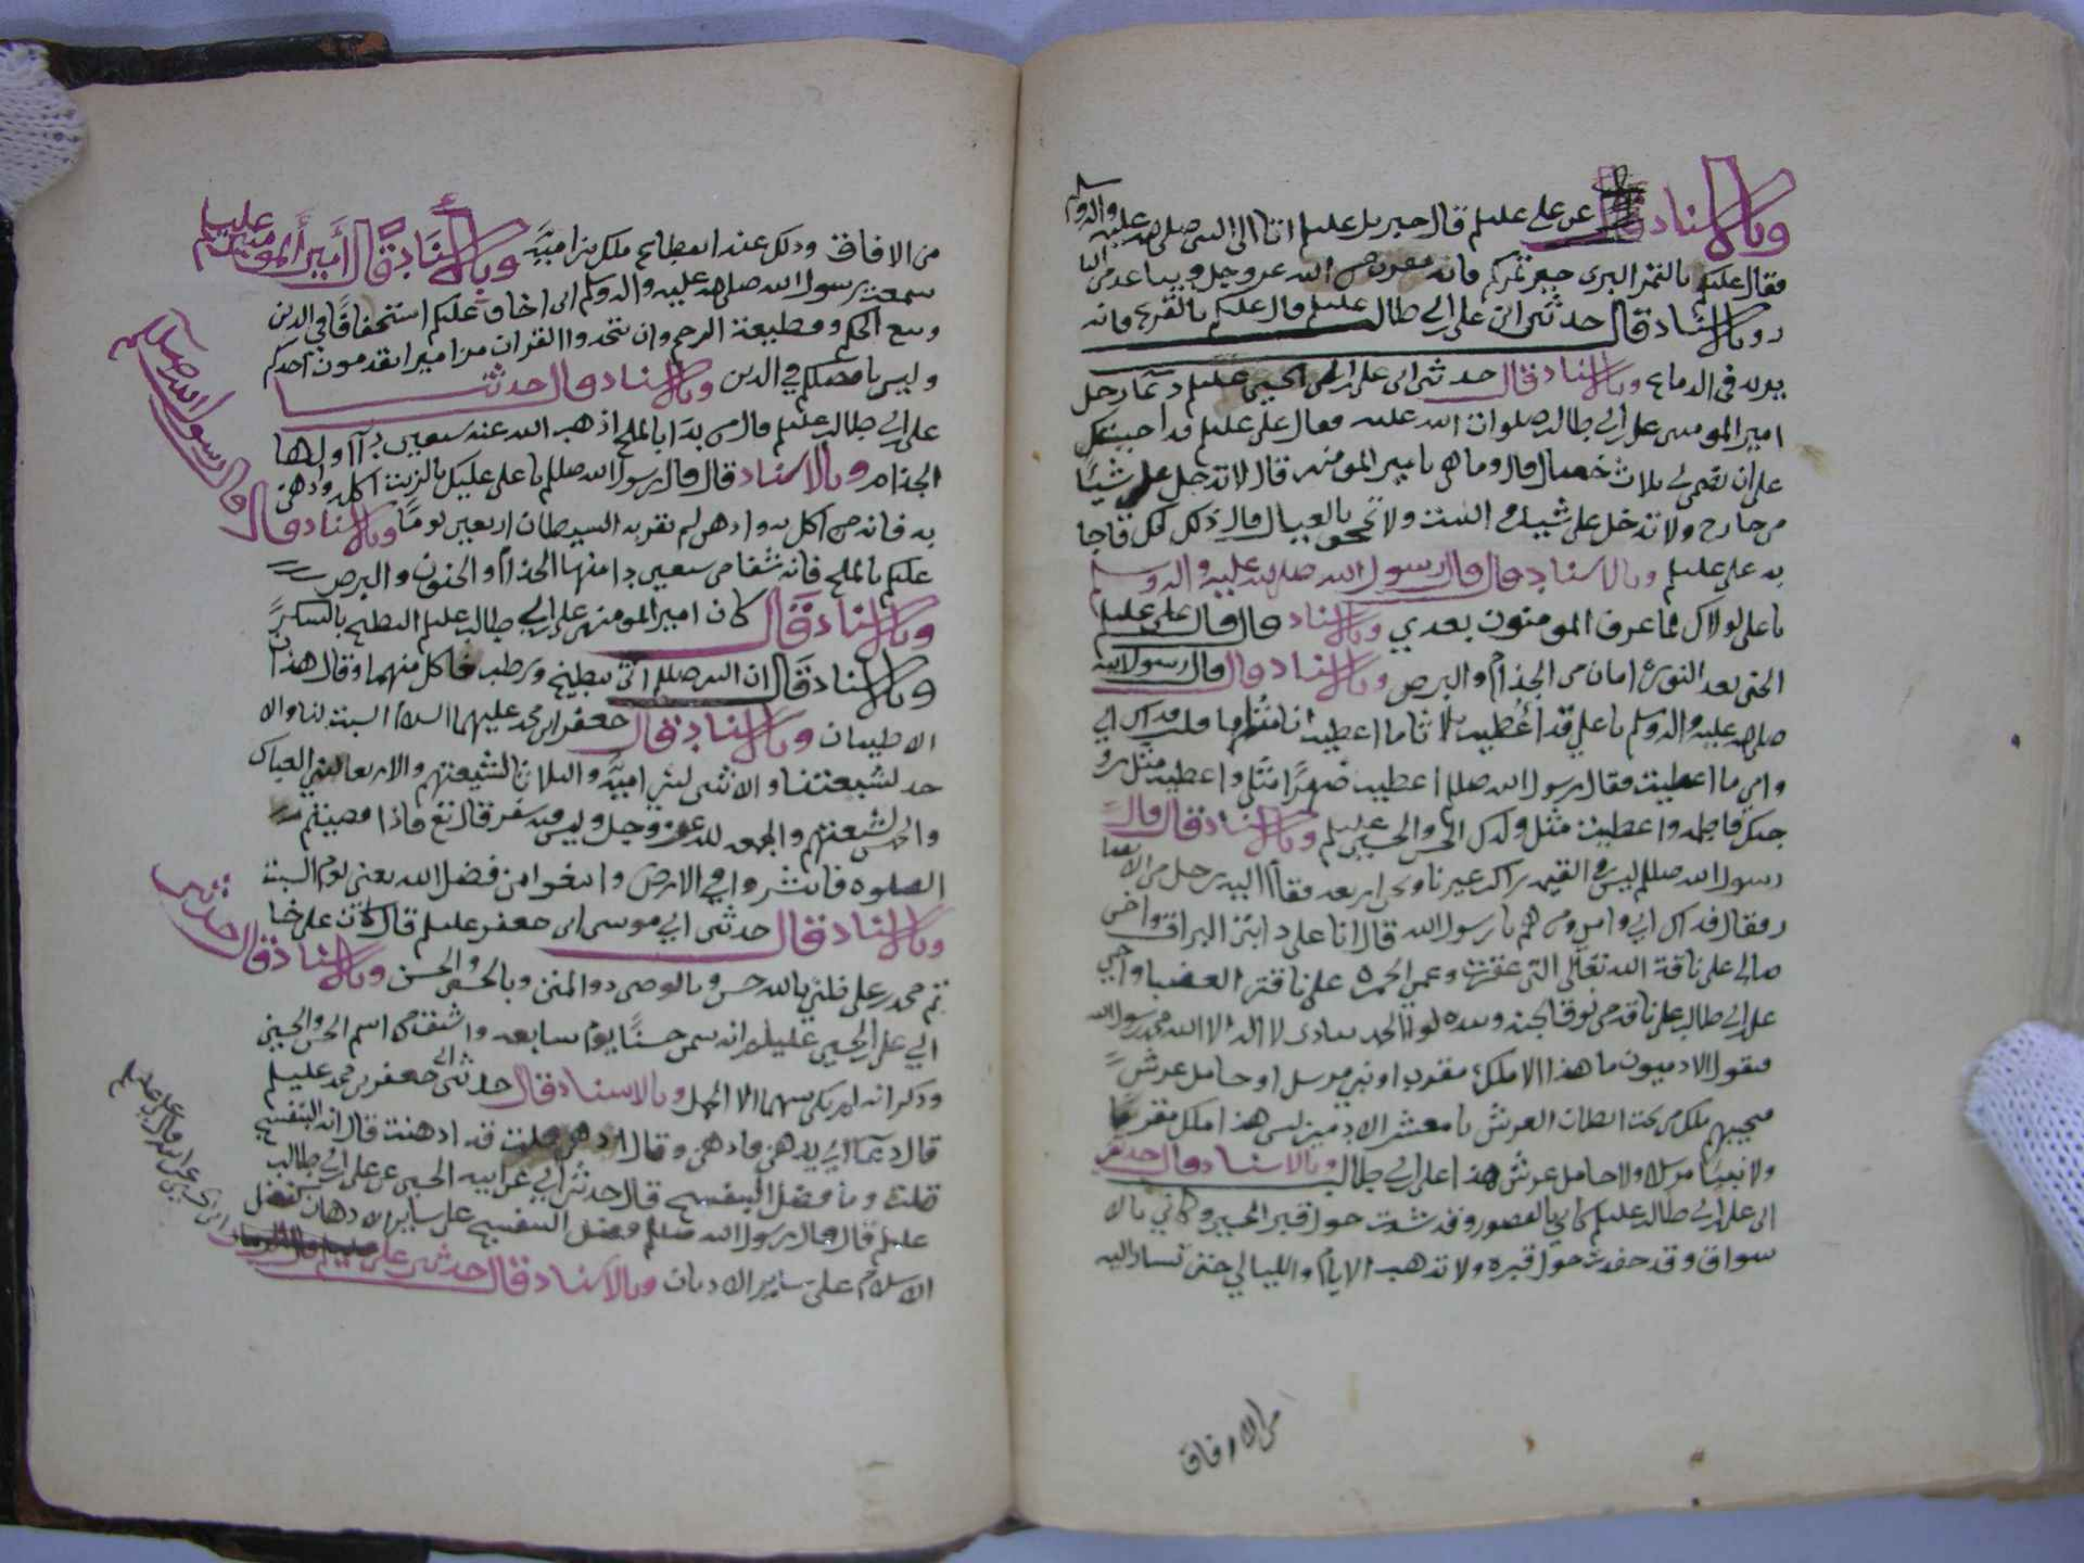 وبالاسناد عن علي عليلم قال جبريل عليلم اتانا الى النبي صلى الله عليه واله وسلم
فقال عليكم بالتمر البرى خير تمركم فانه مقرب من الله عز وجل ويباعد من النا
ر وبالاسناد قال حدثني ابي علي ابن ابي طالب عليلم قال عليكم بالقرع فانه
يزيد في الدماغ وبالاسناد قال حدثني ابي علي ابن الحسين عليلم دعا رجل
امير المومنين علي ابن ابي طالب صلوات الله عليه فقال علي عليلم قد اجبتك
على ان تضمن لي ثلاث خصال قال وما هي يا امير المومنين قال لا تدخل علي شيئا
من خارج ولا تدخر علي شيئا في البيت ولا تجحف بالعيال قال ذلك لك فاجا
به علي عليلم وبالاسناد قال قال رسول الله صلى الله عليه واله وسلم
يا علي لولاك لما عرف المومنون بعدي وبالاسناد قال قال علي عليلم
الحنا بعد النورة امان من الجذام والبرص وبالاسناد قال قال رسول الله
صلى الله عليه واله وسلم يا علي قد اعطيت ثلاثا ما اعطيت انا مثلها قلت فداك ابي
وامي ما اعطيت فقال رسول الله صللم اعطيت صهرا مثلي واعطيت مثل زو
جتك فاطمه واعطيت مثل ولدك الحسن والحسين عليلم وبالاسناد قال قال
رسول الله صللم ليس في القيمه راكب غيرنا ونحن اربعه فقام اليه رجل من الانصا
ر فقال فداك ابي وامي ومن هم يا رسول الله قال انا على دابتي البراق واخي
صالح على ناقة الله تعالى التي عقرت وعمي الحمزه على ناقتي العضبا واخي
علي ابن ابي طالب على ناقه من نوق الجنه وبيده لواء الحمد ينادي لا اله الا الله محمد رسول الله
فيقول الادميون ما هذا الا ملك مقرب او نبي مرسل او حامل عرش
فيجيبهم ملك من تحت بطنان العرش يا معشر الادميين ليس هذا ملك مقربا
ولا نبيا مرسلا ولا حامل عرش هذا علي ابن ابي طالب وبالاسناد قال حدثني
ابي علي ابن ابي طالب عليلم كاني بالقصور وقد شيدت حول قبر الحسين وكاني بالا
سواق وقد حفت حول قبره ولا تذهب الايام والليالي حتى تسار اليه
من الافاق
من الافاق وذلك عند انقطاع ملك بني اميه وبالاسناد قال امير المومنين عليلم
سمعت رسول الله صلى الله عليه واله وسلم اني اخاف عليكم استخفافا في الدين
وبيع الحكم وقطيعة الرحم وان تتخذوا القران مزامير تقدمون احدكم
وليس بافضلكم في الدين وبالاسناد قال حدثنا
علي ابن ابي طالب عليلم قال من بدا بالملح اذهب الله عنه سبعين داء اولها
الجذام وبالاسناد قال قال رسول الله صللم يا علي عليك بالزيت اكله وادهن
به فانه من اكل به وادهن لم يقربه الشيطان اربعين يوما وبالاسناد قال قال رسول الله صللم
عليكم بالملح فانه شفا من سبعين داء منها الجذام والجنون والبرص
وبالاسناد قال كان امير المومنين علي ابن ابي طالب عليلم البطيخ بالسكر
وبالاسناد قال ان النبي صللم اتى ببطيخ ورطب فاكل منهما وقال هذان
الاطيبان وبالاسناد قال جعفر ابن محمد عليهما السلام السبت لنا والا
حد لشيعتنا والاثنين لبني اميه والثلاثا لشيعتهم والاربعا لبني العباس
والخميس لشيعتهم والجمعه لله عز وجل وليس فيه سفر قال تع فاذا قضيتم
الصلوه فانتشروا في الارض وابتغوا من فضل الله يعني يوم السبت
وبالاسناد قال حدثني ابي موسى ابن جعفر عليلم قال كان على خا
تم محمد ابن علي ظني بالله حسن وبالوصي ذو المنن وبالحسين والحسن وبالاسناد قال حدثني
ابي علي ابن الحسين عليلم انه سمى حسنا يوم سابعه واشتق من اسم الحسن والحسين
وذكر انه لم يكن بينهما الا الحمل وبالاسناد قال حدثني ابي جعفر ابن محمد عليلم
قال دعا ابي بدهن فادهن وقال ادهن قلت قد ادهنت قال انه البنفسج
قلت وما فضل البنفسج قال حدثني ابي عن ابيه الحسين عن علي ابن ابي طالب
عليلم قال قال رسول الله صللم فضل البنفسج على ساير الادهان كفضل
الاسلام على ساير الاديان وبالاسناد قال حدثني علي